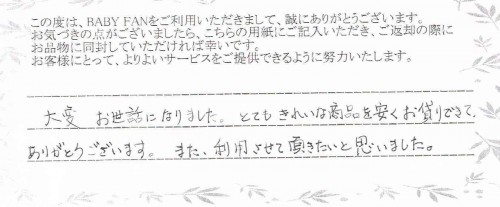 この度は、BABY FANをご利用いただきまして、誠にありがとうございます。
お気づきの点がございましたら、こちらの用紙にご記入いただき、ご返却の際に
お品物に同封していただければ幸いです。
お客様にとって、よりよいサービスをご提供できるように努力いたします。
大変 お世話になりました。とてもきれいな商品を安くお貸りできて、
ありがとうございます。また、利用させて頂きたいと思いました。